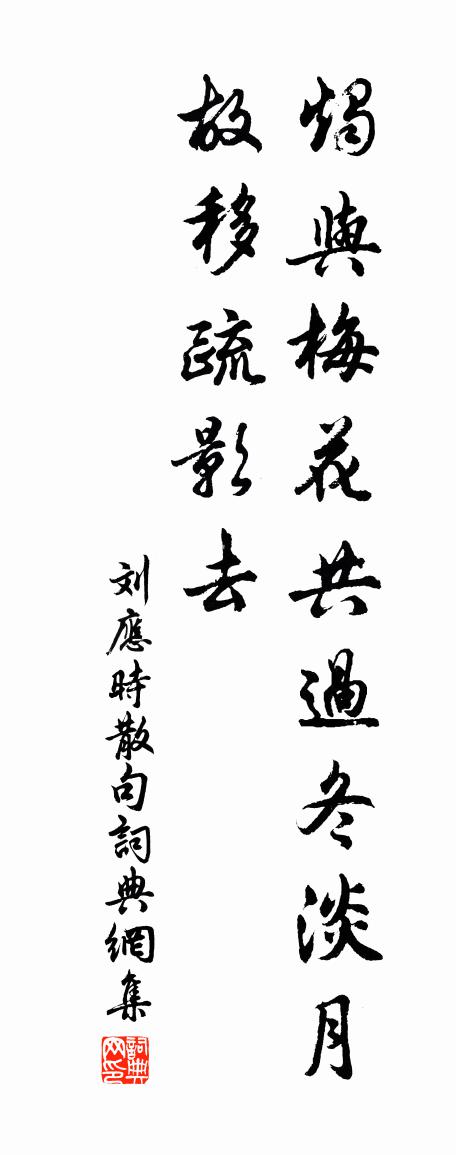 獨與梅花共過冬淡月
故移疏影去
刘應時散句詞典網集
詞典
网印